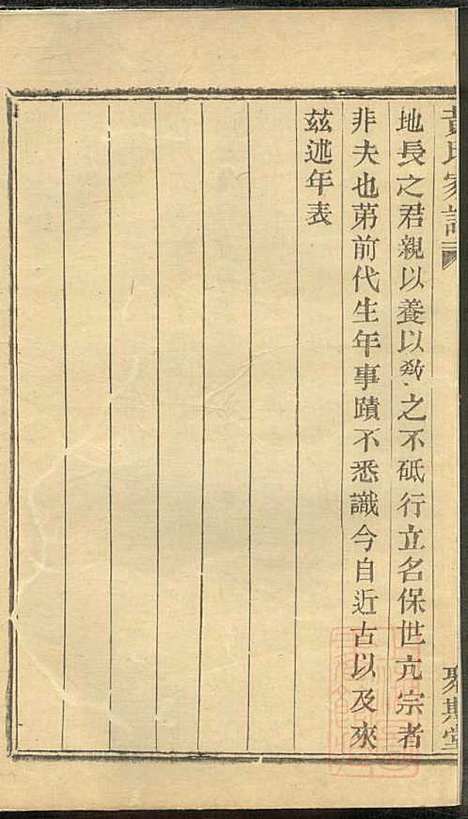 黃氏家譜
聚斯堂
地長之君親以養以敎之不砥行立名保世亢宗者
非夫也苐前代生年事蹟不悉識今自近古以及來
茲述年表